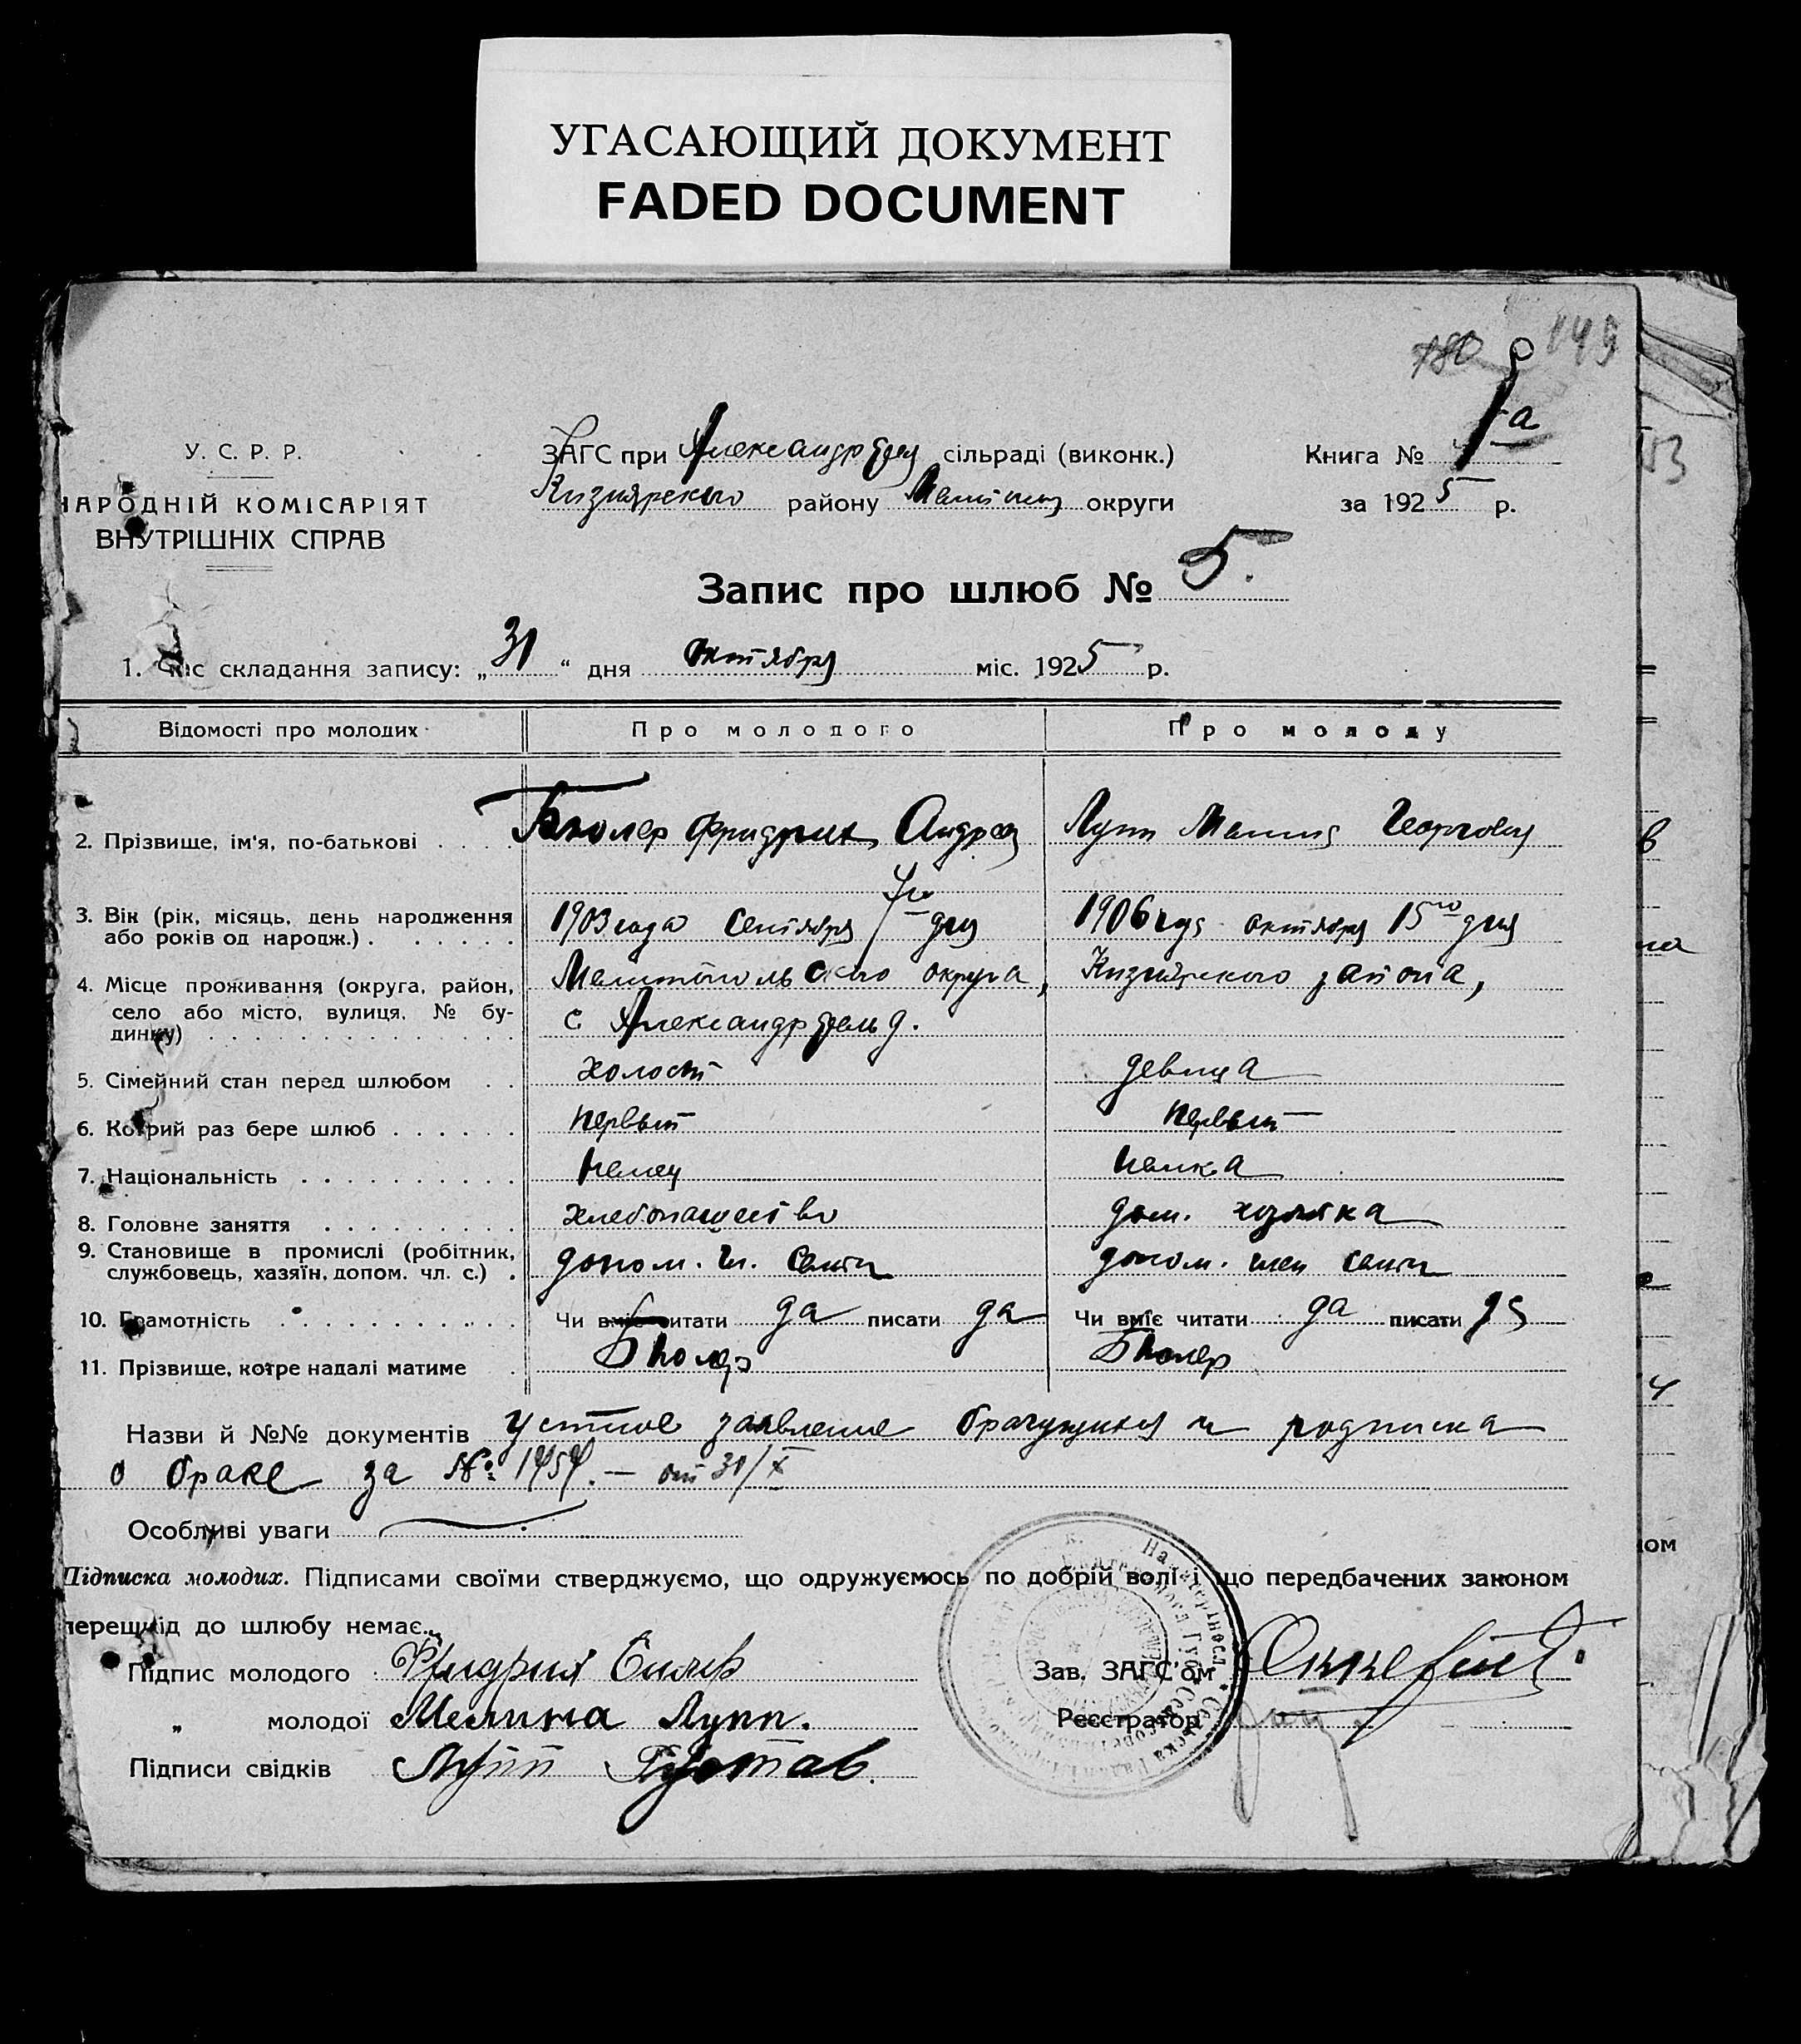 УГАСАЮЩИЙ ДОКУМЕНТ
FADED DOCUMENT
180 149
У. С. Р. Р.
НАРОДНІЙ КОМІСАРІЯТ
ВНУТРІШНІХ СПРАВ
ЗАГС при сільраді (виконк.)
Кизиярского району округи
Книга № 1а
за 1925 р.
Запис про шлюб № 5.
1. Час складання запису: „31“ дня октября міс. 1925 р.
Відомості про молодих Про молодого Про молоду
2. Прізвище, ім'я, по-батькові . . . . Бюлер Фридрих Андрея Лупп Георгиевна
3. Вік (рік, місяць, день народження 1903 года Сентября дня 1906 года октября 15го дня
або років од народж.) . . . . . . .
4. Місце проживання (округа, район, Мелитопольского округа, Кизиярского района,
село або місто, вулиця, № бу- с. Александрфельд.
динку) . . . . . . . . . . . . . .
5. Сімейний стан перед шлюбом . . холост девица
6. Котрий раз бере шлюб . . . . . . первый первый
7. Національність . . . . . . . . . . немец немка
8. Головне заняття . . . . . . . . . хлебопашество дом. хозяйка
9. Становище в промислі (робітник, допом. чл. семьи допом. член семьи
службовець, хазяїн, допом. чл. с.) .
10. Грамотність . . . . . . . . . . . Чи вміє читати да писати да Чи вміє читати да писати да
11. Прізвище, котре надалі матиме . Бюлер Бюлер
Назви й №№ документів устное заявление брачущихся и подписка
о браке за № – от 31/X
Особливі уваги
Підписка молодих. Підписами своїми стверджуємо, що одружуємось по добрій волі і що передбачених законом
перешкід до шлюбу немає.
Підпис молодого Фридрих
„ молодої Мелина Лупп.
Підписи свідків Лупп Густав.
Зав. ЗАГС'ом
Реєстратор